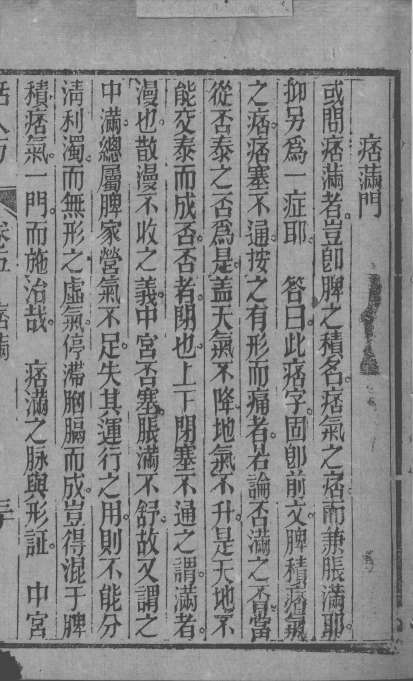 痞滿門
或問痞滿者豈卽脾之積名痞氣之痞而兼脹滿耶
抑另爲一症耶　答曰此痞字固卽前文脾積痞氣
之痞痞塞不通按之有形而痛者若論否滿之否當
從否泰之否爲是蓋天氣不降地氣不升是天地不
能交泰而成否否者閉也上下閉塞不通之謂滿者
漫也散漫不收之義中宮否塞脹滿不舒故又謂之
中滿總屬脾家營氣不足失其運行之用則不能分
清利濁而無形之虛氣停滯胸膈而成豈得混于脾
積痞氣一門而施治哉　痞滿之脉與形証　中宮
活人方　卷五　痞滿